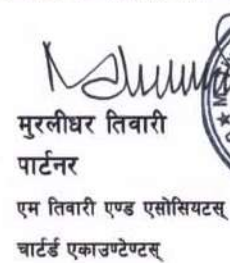 मुरलीधर तिवारी
पार्टनर
एम तिवारी एण्ड एसोसियटस्
चार्टर्ड एकाउण्टेण्टस्